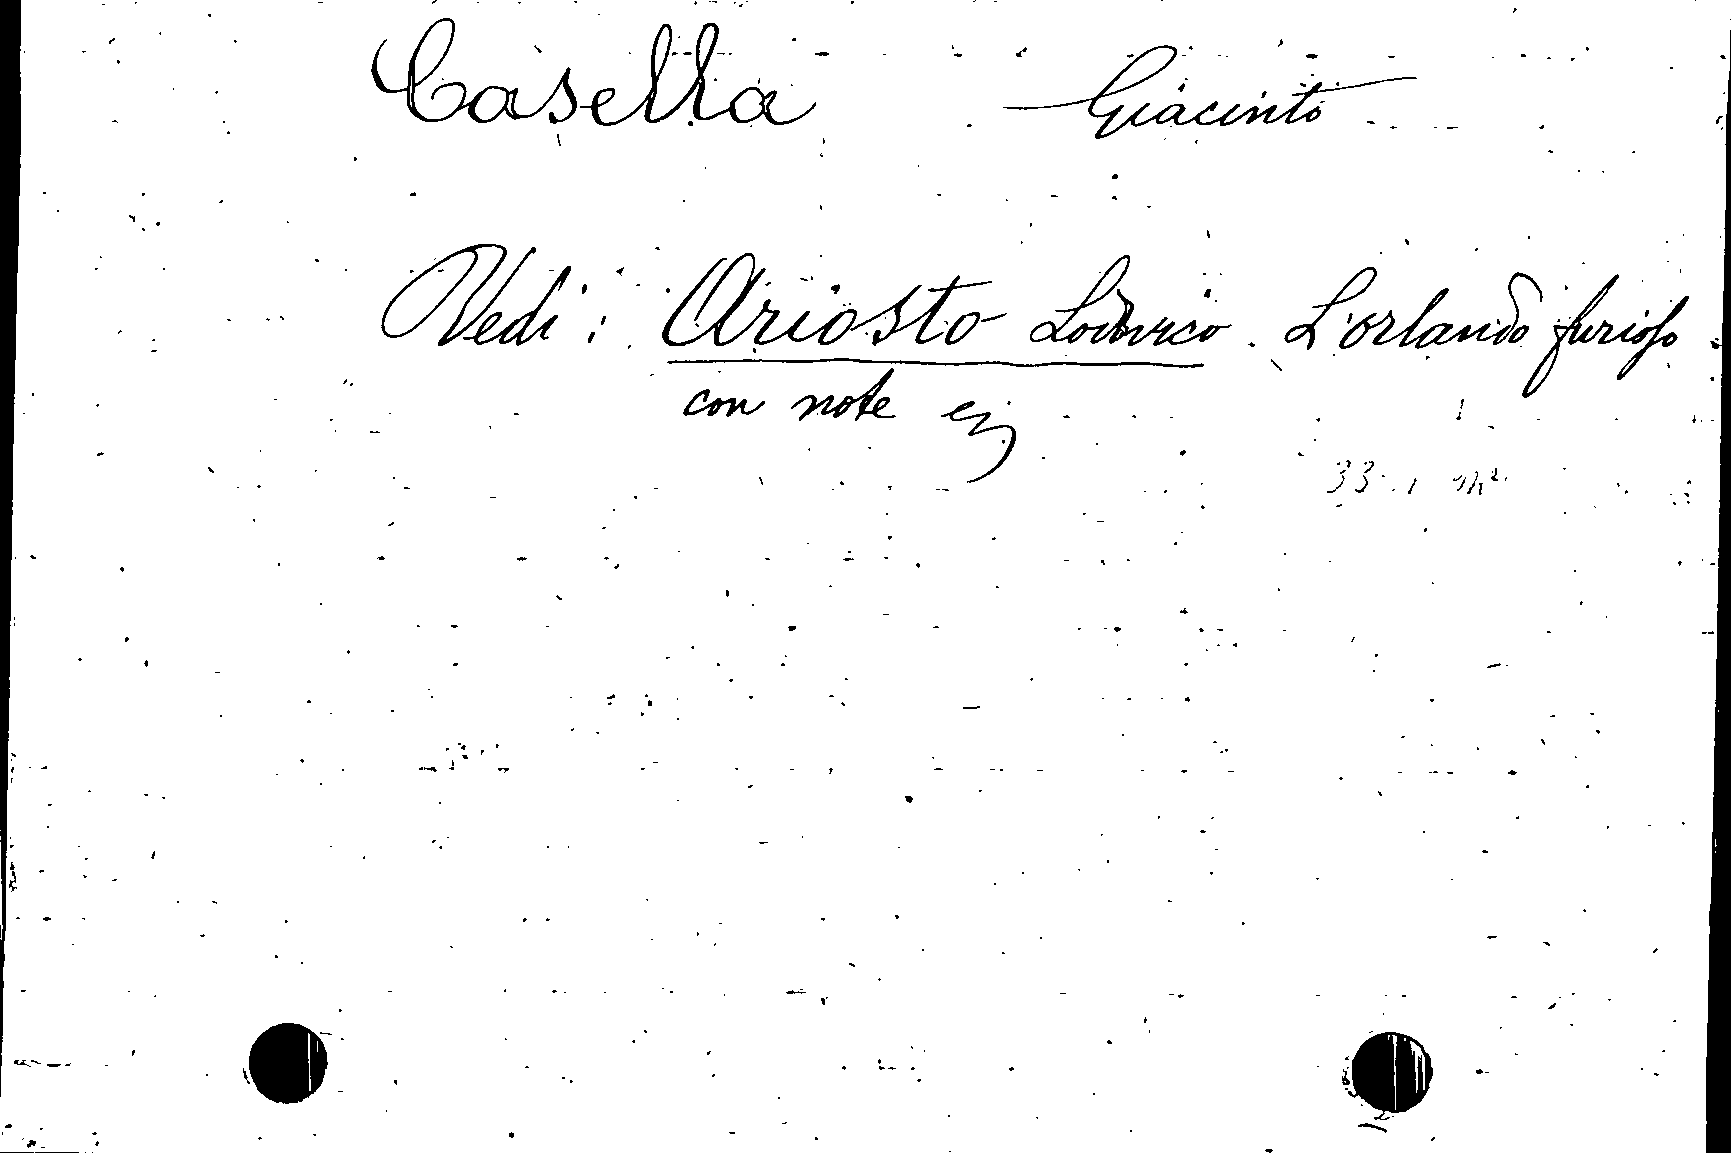 Casella Giacinto
Vedi: Ariosto Lodovico. L'orlando furioso
con note
33